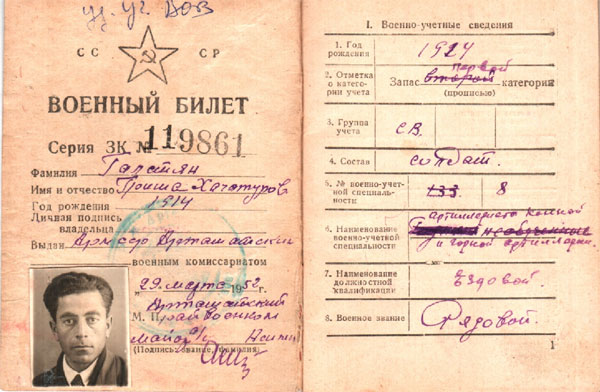 уд. уч. ВОВ
СС СР
ВОЕННЫЙ БИЛЕТ
Серия ЗК № 119861
Фамилия Галстян
Имя и отчество Гриша Хачатуров
Год рождения 1914
Личная подпись
владельца
Выдан Арм ССР Арташатский
военным комиссариатом
„29 марта 1952 г.
Арташатский
М. П. Райвоенком
майор а/с
(Подпись, звание, фамилия)
I. Военно-учетные сведения
1. Год рождения 1914
первой
2. Отметка о категории учета Запас второй категории
(прописью)
3. Группа учета СВ.
4. Состав солдат.
5. № военно-учетной специальности 133 8
артиллерист конной
6. Наименование военно-учетной специальности необученный
и горной артиллерии.
7. Наименование должностной квалификации Ездовой.
8. Военное звание Рядовой.
1